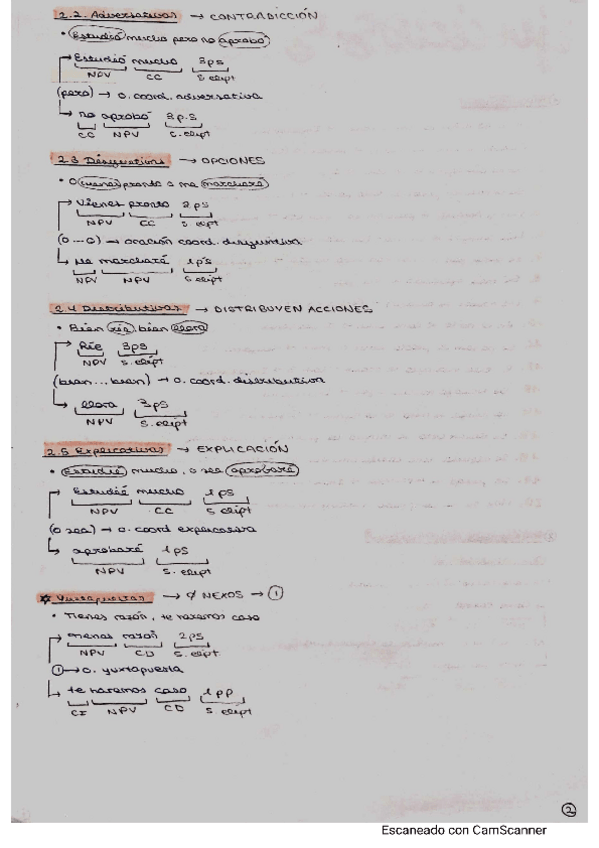 2.2. Adversativas → CONTRADICCIÓN
• Estudió mucho pero no aprobó
Estudió mucho 3ps
NPV CC S. elipt
(pero) → o. coord. adversativa
no aprobó 3p.s
CC NPV S. elipt
2.3 Disyuntivas → OPCIONES
• O vienes pronto o me marcharé
Vienes pronto 2ps
NPV CC S. elipt
(o...o) → oración coord. disyuntiva
me marcharé 1ps
NPV NPV S. elipt
2.4 Distributivas → DISTRIBUYEN ACCIONES
• Bien ríe, bien llora
Ríe 3ps
NPV S. elipt
(bien...bien) → o. coord. distributiva
llora 3ps
NPV S. elipt
2.5 Explicativas → EXPLICACIÓN
• Estudié mucho, o sea aprobaré
Estudié mucho 1ps
NPV CC S. elipt
(o sea) → o. coord
aprobaré 1ps
NPV S. elipt
* Yuxtapuestas → Ø NEXOS → 1
• Tienes razón, te haremos caso
razón 2ps
NPV CD S. elipt
1 → o. yuxtapuesta
te haremos caso 1pp
CI NPV CD S elipt
2
Escaneado con CamScanner